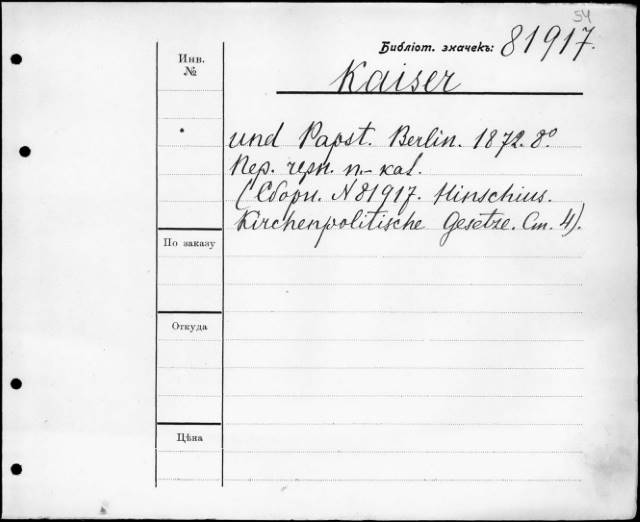 54
Библіот. значекъ: 81917.
Инв.
№
Kaiser
und Papst. Berlin. 1872. 8º
Пер. черн. п.-каl.
(Сборн. N 81917. Hinschius.
Kirchenpolitische Gesetze. Ст. 4).
По заказу
Откуда
Цѣна